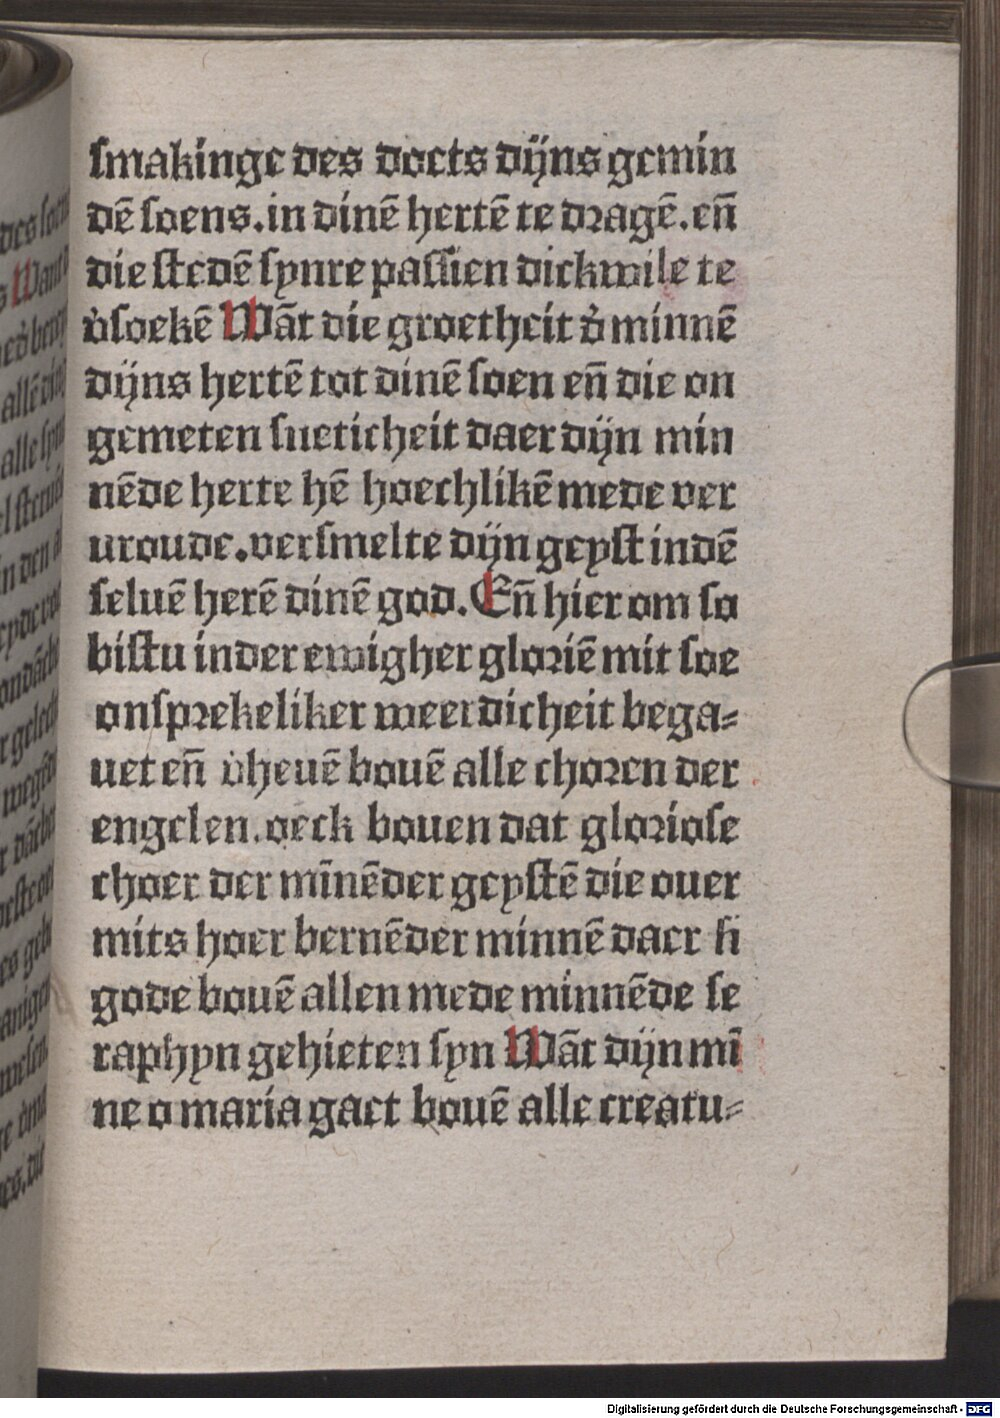 ſmakinge des doets dijns gemin
dē ſoens.in dinē hertē te dragē.eñ
die ſtedē ſynre paſſien dickwile te
v̉ſoekē Wāt die groetheit d̉ minnē
dijns hertē tot dinē ſoen eñ die on
gemeten ſueticheit daer dijn min
nēde herte hē hoechlikē mede ver
uroude.verſmelte dijn geyſt indē
ſeluē herē dinē god.Eñ hier om ſo
biſtu in der ewigher gloriē mit ſoe
onſprekeliker weerdicheit bega⸗
uet eñ v̉heuē bouē alle choren der
engelen.oeck bouen dat glorioſe
choer der mīnēder geyſtē die ouer
mits hoer bernēder minnē daer ſi
gode bouē allen mede minnēde ſe
raphyn gehieten ſyn Wāt dijn mī
ne o maria gaet bouē alle creatu⸗
Digitalisierung gefördert durch die Deutsche Forschungsgemeinschaft - DFG